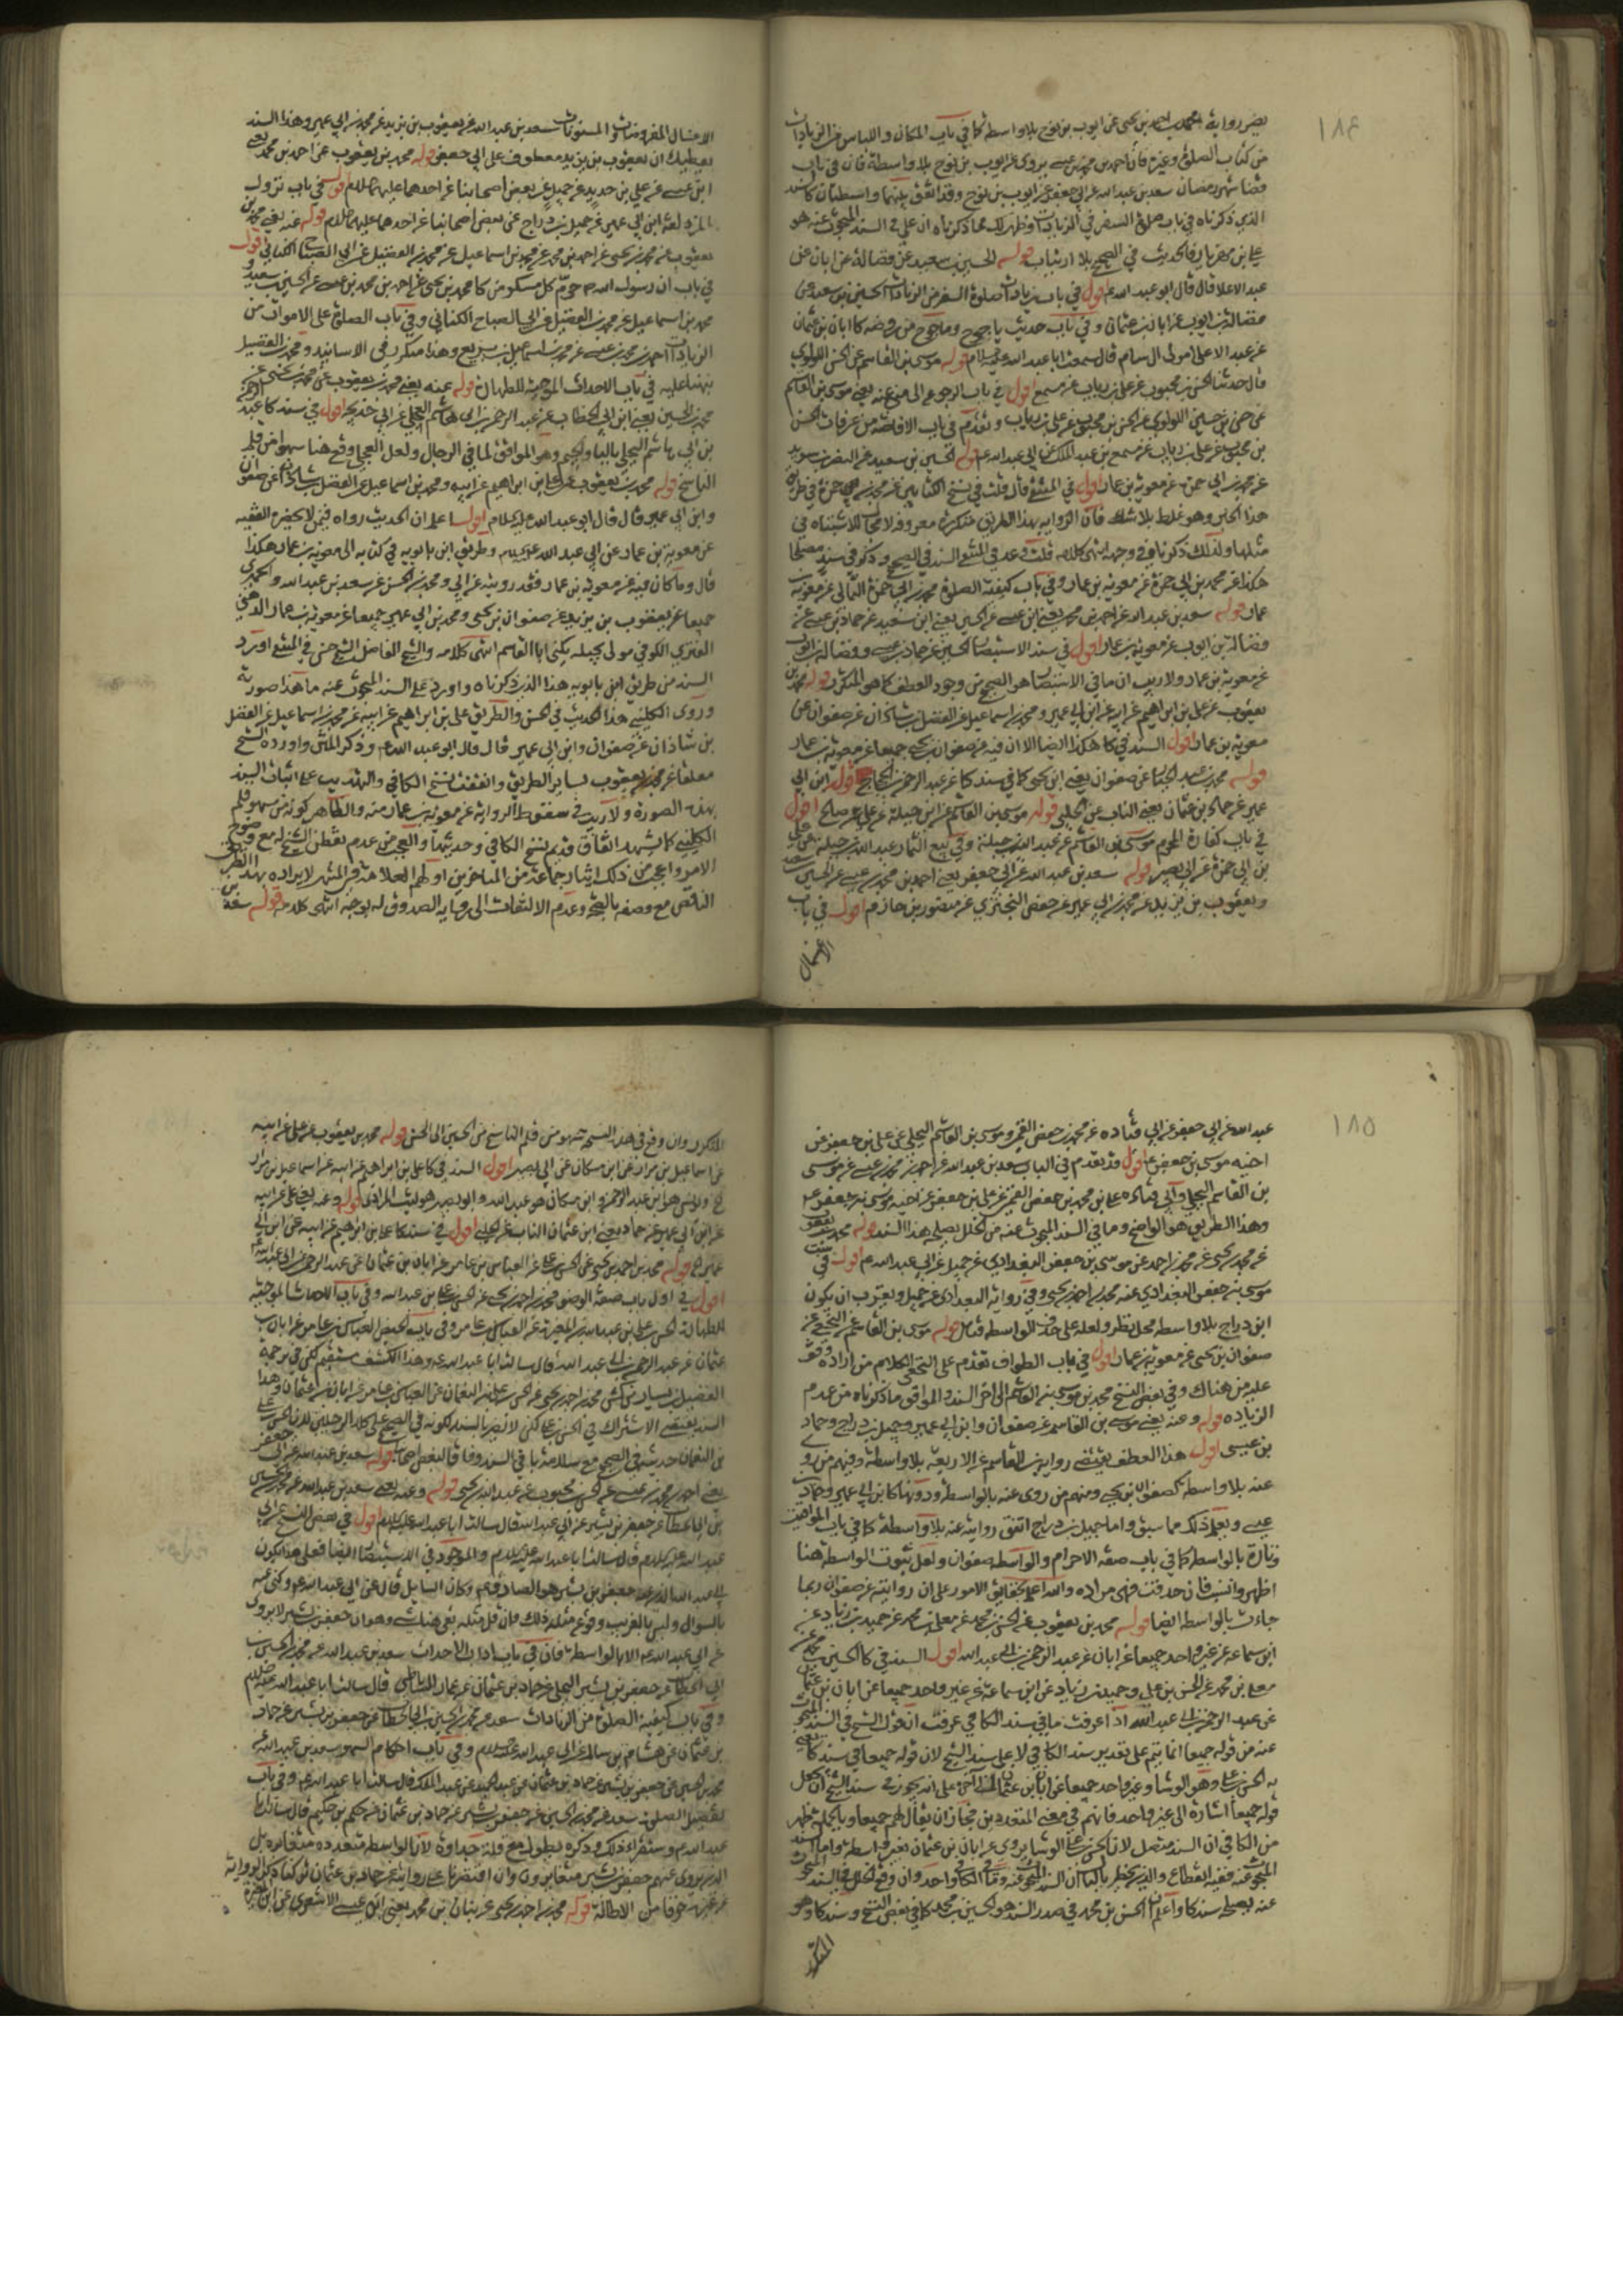 ١٨٤
من كتاب الصلوة وغيره فان احمد بن محمد بن عيسى يروى عن ايوب بن نوح بلا واسطة فان في باب
قضا شهر رمضان سعد بن عبد الله عن ابي جعفر عن ايوب بن نوح وقد اتفق بينهما واسطتان كالسند
الذي ذكرناه في باب صلوة السفر في الزيادات وظهر لك مما ذكرناه ان علي في السند المبحوث عنه هو
علي بن مهزيار فالحديث في الصحيح بلا ارتياب قوله الحسين بن سعيد عن فضالة عن ابان عن
عبد الاعلا قال قال ابو عبد الله ع اقول في باب زيادات صلوة السفر من الزيادات الحسين بن سعيد عن
فضالة بن ايوب عن ابان بن عثمان وفي باب حديث ياجوج وماجوج من روضه كا ابان بن عثمان
عن عبد الاعلى مولى ال سام قال سمعت ابا عبد الله عليه السلام قوله موسى بن القاسم عن الحسن اللولوي
قال حدثنا الحسن بن محبوب عن علي بن رياب عن مسمع اقول في باب الرجوع الى منى عنه يعني موسى بن القاسم
بن محبوب عن علي بن رياب عن مسمع بن عبد الملك عن ابي عبد الله ع قوله الحسين بن سعيد عن النضر بن سويد
هذا الخبر وهو غلط بلا شك فان الرواية بهذا الطريق متكررة معروفة لا مجال للاشتباه في
هكذا عن محمد بن ابي حمزة عن معوية بن عمار وفي باب كيفية الصلوة محمد بن ابي حمزة الثمالي عن معوية بن
عمار قوله سعد بن عبد الله عن احمد بن محمد يعني ابن عيسى عن الحسين يعني ابن سعيد عن حماد بن عيسى عن
فضالة بن ايوب عن معوية بن عمار اقول في سند الاستبصار الحسين عن حماد بن عيسى وفضالة بن ايوب
عن معوية بن عمار ولا ريب ان ما في الاستبصار هو الصحيح من وجود العطف كما هو المتكرر قوله محمد بن
يعقوب عن علي بن ابراهيم عن ابيه عن ابن ابي عمير ومحمد بن اسماعيل عن الفضل بن شاذان عن صفوان عن
معوية بن عمار اقول السند في كا هكذا ايضا الا ان فيه عن صفوان بن يحيى جميعا عن معوية بن عمار
قوله محمد بن عبد الجبار عن صفوان يعني ابن يحيى كما في سند كا عن عبد الرحمن بن الحجاج قوله ابن ابي
عمير عن حماد بن عثمان يعني الناب عن الحلبي قوله موسى بن القاسم عن ابن جبلة عن علي عن صالح اقول
في باب كفارة المحرم موسى بن القاسم عن عبد الله بن جبلة وفي بيع الثمار عبد الله بن جبلة عن علي
بن ابي حمزة عن ابي بصير قوله سعد بن عبد الله عن ابي جعفر يعني احمد بن محمد بن عيسى عن الحسين بن سعيد
ويعقوب بن يزيد عن محمد بن ابي عمير عن حفص البختري عن منصور بن حازم اقول في باب
الاغسال
الاغسال المفروضات والمسنونات سعد بن عبد الله عن يعقوب بن يزيد عن محمد بن ابي عمير وهذا السند
يعطيك ان يعقوب بن يزيد معطوف على ابي جعفر قوله محمد بن يعقوب عن احمد بن محمد يعني
ابن عيسى عن علي بن حديد عن جميل عن بعض اصحابنا عن احدهما عليهما السلام اقول في باب نزول
المزدلفة ابن ابي عمير عن جميل بن دراج عن بعض اصحابنا عن احدهما عليهما السلام قوله عنه يعني محمد بن
يعقوب عن محمد بن يحيى عن احمد بن محمد عن محمد بن اسماعيل عن محمد بن الفضيل عن ابي الصباح الكناني اقول
في باب ان رسول الله ص حرم كل مسكر من كا محمد بن يحيى عن احمد بن محمد بن عيسى عن الحسين بن سعيد و
محمد بن اسماعيل عن محمد بن الفضيل عن ابي الصباح الكناني وفي باب الصلوة على الاموات من
الزيادات احمد بن محمد بن عيسى عن محمد بن اسماعيل بن بزيع وهذا متكرر في الاسانيد ومحمد بن الفضيل
نبهنا عليه في باب الاحداث الموجبة للطهارة قوله عنه يعني محمد بن يعقوب عن محمد بن يحيى عن
محمد بن الحسين يعني ابن ابي الخطاب عن عبد الرحمن بن ابي هاشم البجلي عن ابي خديجة اقول في سند كا عبد الرحمن
بن ابي هاشم البجلي بالباء والجيم وهو الموافق لما في الرجال ولعل العجلي وقع هنا سهوا من قلم
الناسخ قوله محمد بن يعقوب عن علي بن ابراهيم عن ابيه ومحمد بن اسماعيل عن الفضل بن شاذان عن صفوان
وابن ابي عمير قال قال ابي عبد الله عليه السلام اقول اعلم ان الحديث رواه فيمن لا يحضره الفقيه
عن معوية بن عمار عن ابي عبد الله عليه السلام وطريق ابن بابويه في كتابه الى معوية بن عمار هكذا
قال وما كان فيه عن معوية بن عمار فقد رويته عن ابي ومحمد بن الحسن عن سعد بن عبد الله والحميري
جميعا عن يعقوب بن يزيد عن صفوان بن يحيى ومحمد بن ابي عمير جميعا عن معوية بن عمار الدهني
الغنوي الكوفي مولى بجيله يكنى ابا القاسم انتهى كلامه والشيخ الفاضل الشيخ حسن في المنتقى اورد
السند من طريق ابن بابويه هذا الذي ذكرناه واورد على السند المبحوث عنه ما هذا صورته
وروى الكليني هذا الحديث في الحسن والطريق علي بن ابراهيم عن ابيه عن محمد بن اسماعيل عن الفضل
بن شاذان عن صفوان وابن ابي عمير قال قال ابو عبد الله ع وذكر المتن واورده الشيخ
معلقا عن محمد بن يعقوب بساير الطريق واتفقت نسخ الكافي والتهذيب على اثبات السند
بهذه الصورة ولا ريب في سقوط الرواية عن معوية بن عمار منه والظاهر كونه من سهو قلم
الكليني كما يشهد اتفاق قديم نسخ الكافي وحديثها والعجب من عدم تفطن الشيخ له مع وضوح
الامر واعجب من ذلك ايثار جماعة من المتاخرين اولهم العلامة في المنتهى لايراده بهذا الطريق
الناقص مع وصفه بالصحة وعدم الالتفات الى رواية الصدوق له بوجه انتهى كلامه قوله سعد بن
١٨٥
عبد الله عن ابي جعفر عن ابي قتاده عن محمد بن حفص القمي وموسى بن القاسم البجلي عن علي بن جعفر عن
اخيه موسى بن جعفر ع اقول قد تقدم في الباب سعد بن عبد الله عن احمد بن محمد بن عيسى عن موسى
بن القاسم البجلي وابي قتاده علي بن محمد بن حفص القمي عن علي بن جعفر عن اخيه موسى بن جعفر ع
وهذا الطريق هو الواضح وما في السند المبحوث عنه من الخلل يصلحه هذا السند قوله محمد بن يعقوب
عن محمد بن يحيى عن محمد بن احمد عن موسى بن جعفر البغدادي عن جميل عن ابي عبد الله ع اقول في
موسى بن جعفر البغدادي عنه محمد بن احمد بن يحيى وفي رواية البغدادي عن جميل ويقرب ان يكون
ابن دراج بلا واسطه محل نظر ولعله على حذف الواسطه فتامل قوله موسى بن القاسم عن النخعي عن
صفوان بن يحيى عن معوية بن عمار اقول في باب الطواف تقدم على النخعي الكلام من اراده وقف
عليه من هناك وفي بعض النسخ محمد بن موسى بن القاسم الى اخر السند والموافق ما ذكرناه من عدم
الزياده قوله وعنه يعني موسى بن القاسم عن صفوان وابن ابي عمير وجميل بن دراج وحماد
بن عيسى اقول هذا العطف يقتضى رواية بن القاسم عن الاربعة بلا واسطة وفيهم من روى
عنه بلا واسطه كصفوان بن يحيى ومنهم من روى عنه بالواسطة ودونها كابن ابي عمير وحماد بن
عيسى ويعلم ذلك مما سبق واما جميل بن دراج اتفق روايته عنه بلا واسطة كما في باب المواقيت
وتارة بالواسطه كما في باب صفة الاحرام والواسطه صفوان ولعل ثبوت الواسطة هنا
جاءت بالواسطه ايضا قوله محمد بن يعقوب عن الحسين بن محمد عن معلى بن محمد عن حميد بن زياد عن
ابن سماعه عن غير واحد جميعا عن ابان عن عبد الرحمن بن ابي عبد الله اقول السند في كا الحسين بن محمد عن
معلى بن محمد عن الحسن بن علي وحميد بن زياد عن ابن سماعة عن غير واحد جميعا عن ابان بن عثمان
عن عبد الرحمن بن ابي عبد الله اذا عرفت ما في سند الكافي عرفت ان قول الشيخ في السند المبحوث
عنه من قوله جميعا انما يتم على تقدير سند الكافي لا على سند الشيخ لان قوله جميعا في سند كا يعني
قوله جميعا اشارة الى غير واحد فانهم في معنى المتعددين فجاز ان يقال لهم جميعا وبالجملة يظهر
من الكافي ان السند متصل لان الحسن بن علي الوشا يروي عن ابان بن عثمان بغير واسطة واما السند
عنه يصلحه سند كا واعلم ان الحسن بن محمد في صدر السند هو الحسين بن محمد كما في بعض النسخ وسند كا وهو
المتكرر
المتكرر وان وقع في هذه النسخة سهو من قلم الناسخ من الحسين الى الحسن قوله محمد بن يعقوب عن علي عن ابيه
عن اسماعيل بن مرار عن ابن مسكان عن ابي بصير اقول السند في كا علي بن ابراهيم عن ابيه عن اسماعيل بن مرار
عن يونس هو ابن عبد الرحمن وابن مسكان هو عبد الله وابو بصير هو ليث المرادي قوله وعنه يعني علي عن ابيه
عن ابن ابي عمير عن حماد يعني ابن عثمان الناب عن الحلبي اقول في سند كا علي بن ابراهيم عن ابيه عن ابن ابي
عمير الخ قوله محمد بن احمد بن يحيى عن الحسن بن علي عن العباس بن عامر عن ابان بن عثمان عن عبد الرحمن بن ابي عبد الله
اقول في اول باب صفة الوضوء محمد بن احمد بن يحيى عن الحسن بن علي بن عبد الله وفي باب الاحداث الموجبة
للطهارة الحسن بن علي بن عبد الله بن المغيرة عن العباس بن عامر وفي باب الحيض العباس بن عامر عن ابان بن
عثمان عن عبد الرحمن بن ابي عبد الله قال سالت ابا عبد الله ع وهذا الكشف مستقيم لكن في ترجمة
الفضيل بن يسار من كش محمد بن احمد بن يحيى عن الحسن بن علي بن النعمان عن العباس بن عامر عن ابان بن عثمان وهذا
السند يقتضي الاشتراك في الحسن بن علي لكن لا يضر بالسند لكونه في الصحيح على كلا الرجلين لان الحسن بن علي
بن النعمان حديثه في الصحيح مع سلامة باقي السند وفاقا لبعض اصحابنا قوله سعد بن عبد الله عن ابي جعفر
يعني احمد بن محمد بن عيسى عن الحسن بن محبوب عن عبد الله بن يحيى قوله وعنه يعني سعد بن عبد الله عن محمد بن الحسين
بن ابي الخطاب عن جعفر بن بشير عن ابي عبد الله قال سالت ابا عبد الله عليه السلام اقول في بعض النسخ عن ابي
عبد الله عليه السلام قال سالت ابا عبد الله عليه السلام والموجود في الاستبصار ايضا فعلى هذا يكون
بالسؤال وليس بالغريب وقوع مثله ذلك فان قيل مثله بقي هنا شيء وهو ان جعفر بن بشير لا يروي
عن ابي عبد الله ع الا بالواسطة فان في باب اداب الاحداث سعد بن عبد الله عن محمد بن الحسين بن
ابي الخطاب عن جعفر بن بشير البجلي عن حماد بن عثمان عن عمار الساباطي قال سالت ابا عبد الله عليه السلام
وفي باب كيفية الصلوة من الزيادات سعد عن محمد بن الحسين بن ابي الخطاب عن جعفر بن بشير عن حماد
بن عثمان عن هشام بن سالم عن ابي عبد الله عليه السلام وفي باب احكام السهو سعد بن عبد الله عن
محمد بن الحسين عن جعفر بن بشير عن حماد بن عثمان عن عبيد عن عبد الملك قال سالت ابا عبد الله ع وفي باب
تفصيل الصلوة سعد عن محمد بن الحسين عن جعفر بن بشير عن حماد بن عثمان عن حكم بن حكيم قال سالت ابا
عن غيره خوفا من الاطالة قوله محمد بن احمد بن يحيى عن بنان بن محمد يعني ابن عيسى الاشعري عن ابن المغيرة